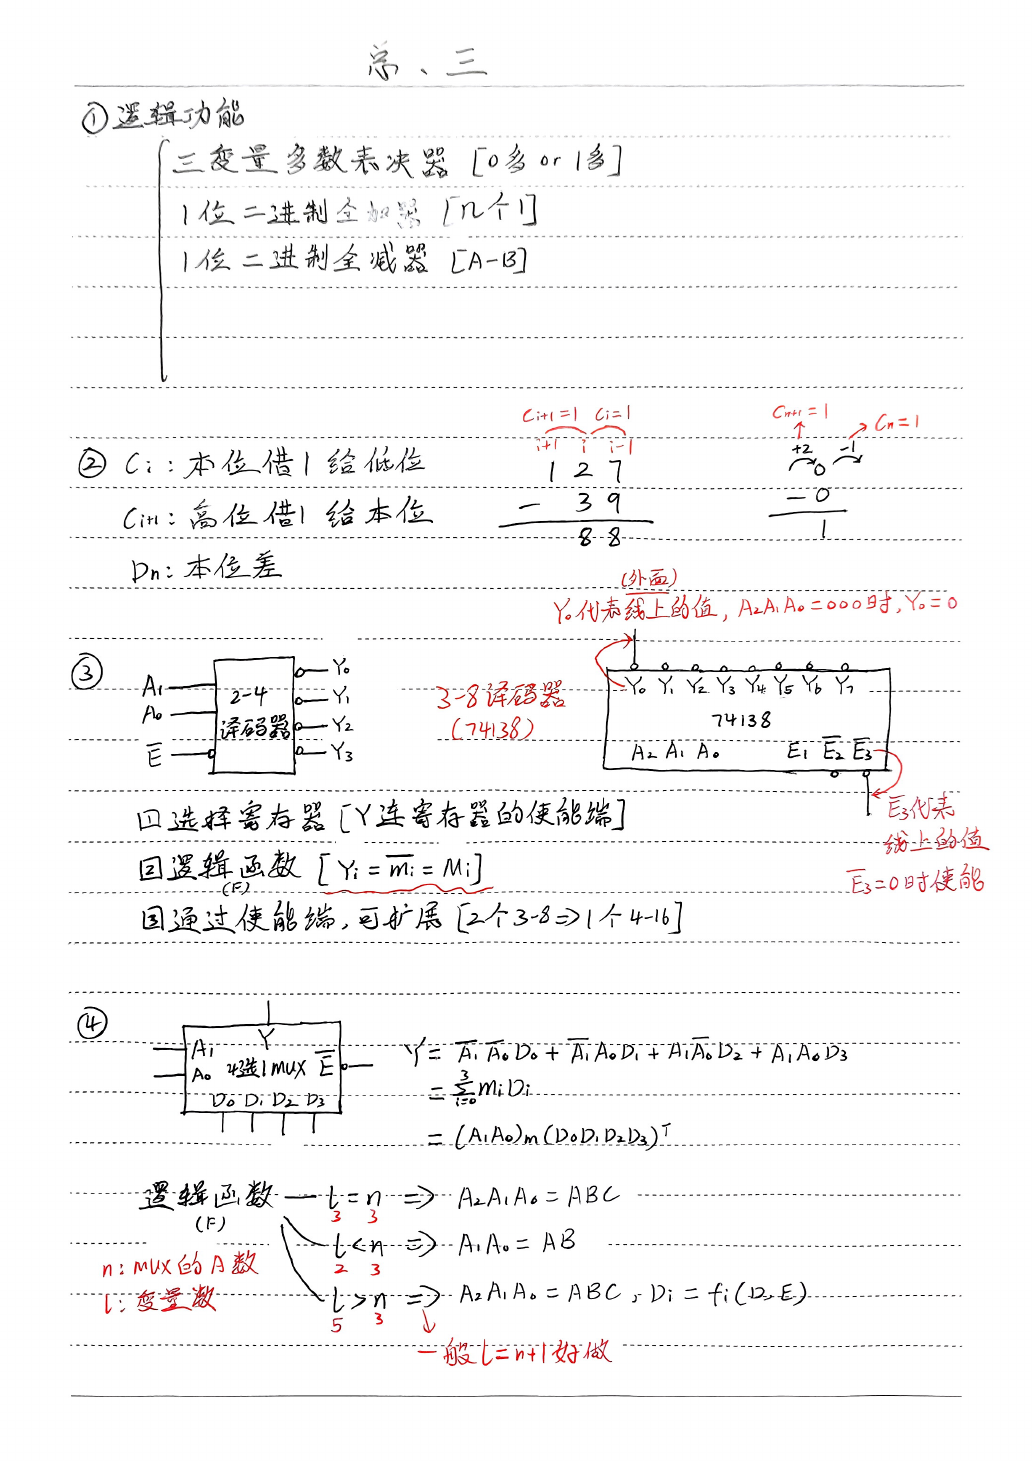 总、三
① 逻辑功能
三变量多数表决器 [0多 or 1多]
1位二进制全加器 [几个1]
1位二进制全减器 [A-B]
② Ci：本位借1给低位
Ci+1：高位借1给本位
Dn：本位差
Ci+1=1 Ci=1
i+1 i i-1
1 2 7
- 3 9
8 8
Cn+1=1 Cn=1
+2 -1
0
- 0
1
(外面)
Y0代表线上的值，A2A1A0=000时，Y0=0
③
A1
A0
E̅
2-4
译码器
Y0
Y1
Y2
Y3
3-8译码器
(74138)
Y0 Y1 Y2 Y3 Y4 Y5 Y6 Y7
74138
A2 A1 A0 E1 E̅2 E̅3
E̅3代表
线上的值
E̅3=0时使能
1 选择寄存器 [Y连寄存器的使能端]
2 逻辑函数 [Yi = m̅i = Mi]
(F)
3 通过使能端，可扩展 [2个3-8 ⇒ 1个4-16]
④
Y
A1
A0 4选1MUX E̅
D0 D1 D2 D3
Y = A̅1 A̅0 D0 + A̅1 A0 D1 + A1 A̅0 D2 + A1 A0 D3
= Σ(i=0→3) miDi
= (A1A0)m(D0D1D2D3)ᵀ
逻辑函数 — l = n ⇒ A2A1A0 = ABC
(F) 3 3
l < n ⇒ A1A0 = AB
2 3
n：MUX的A数
l：变量数
l > n ⇒ A2A1A0 = ABC，Di = fi(D,E)
5 3
一般l=n+1好做